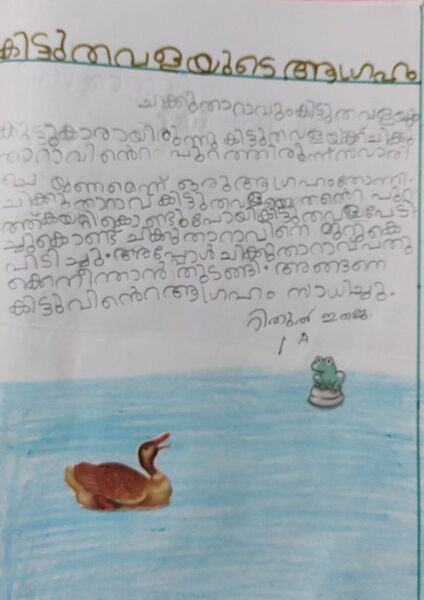 കിട്ടുതവളയുടെ ആഗ്രഹം
ചിക്കുതാറാവുംകിട്ടുതവളയും
കൂട്ടുകാരായിരുന്നു കിട്ടുതവളയ്ക്ക് ചിക്കു
താറാവിൻെറ പുറത്തിരുന്ന് സവാരി
ചെയ്യണമെന്ന് ഒരു ആഗ്രഹംതോന്നി.
ചിക്കുതാറാവ് കിട്ടുതവളയെ തന്റെ പുറ
ത്ത്കയറ്റികൊണ്ടുപോയികിട്ടുതവളപേടി
ച്ചുകൊണ്ട് ചിക്കുതാറാവിനെ മുറുകെ
പിടിച്ചു. അപ്പോൾ ചിക്കുതാറാവ്പതു
ക്കെനീന്താൻ തുടങ്ങി. അങ്ങനെ
കിട്ടുവിൻെറആഗ്രഹം സാധിച്ചു.
1 A